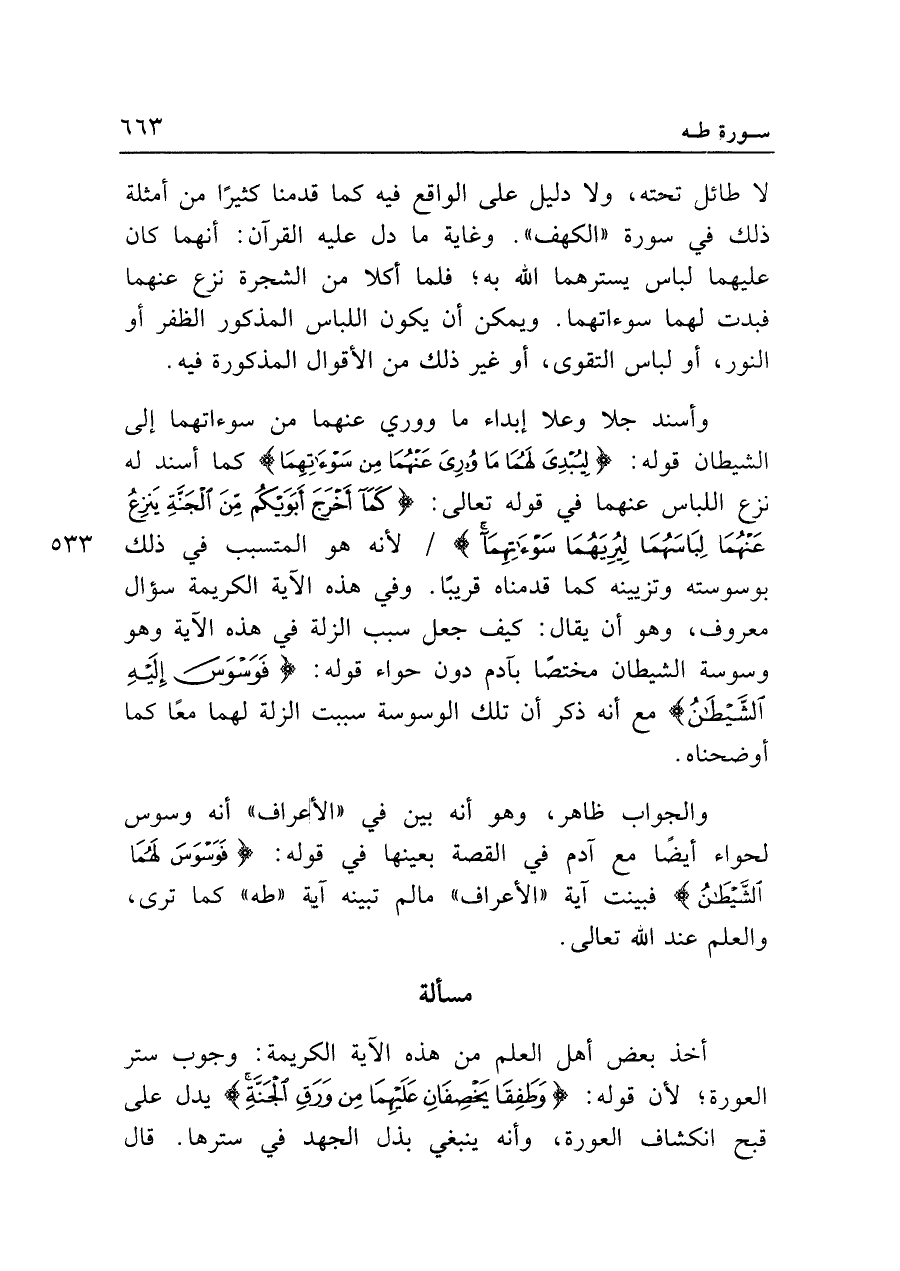 سورة طه ٦٦٣
لا طائل تحته، ولا دليل على الواقع فيه كما قدمنا كثيرًا من أمثلة
ذلك في سورة «الكهف». وغاية ما دل عليه القرآن: أنهما كان
عليهما لباس يسترهما الله به؛ فلما أكلا من الشجرة نزع عنهما
فبدت لهما سوءاتهما. ويمكن أن يكون اللباس المذكور الظفر أو
النور، أو لباس التقوى، أو غير ذلك من الأقوال المذكورة فيه.
وأسند جلا وعلا إبداء ما ووري عنهما من سوءاتهما إلى
الشيطان قوله: ﴿لِيُبْدِيَ لَهُمَا مَا وُۥرِيَ عَنْهُمَا مِن سَوْءَٰتِهِمَا﴾ كما أسند له
نزع اللباس عنهما في قوله تعالى: ﴿كَمَآ أَخْرَجَ أَبَوَيْكُم مِّنَ ٱلْجَنَّةِ يَنزِعُ
عَنْهُمَا لِبَاسَهُمَا لِيُرِيَهُمَا سَوْءَٰتِهِمَآۚ﴾ / لأنه هو المتسبب في ذلك ٥٣٣
بوسوسته وتزيينه كما قدمناه قريبًا. وفي هذه الآية الكريمة سؤال
معروف، وهو أن يقال: كيف جعل سبب الزلة في هذه الآية وهو
وسوسة الشيطان مختصًا بآدم دون حواء قوله: ﴿فَوَسْوَسَ إِلَيْهِ
ٱلشَّيْطَٰنُ﴾ مع أنه ذكر أن تلك الوسوسة سببت الزلة لهما معًا كما
أوضحناه.
والجواب ظاهر، وهو أنه بين في «الأعراف» أنه وسوس
لحواء أيضًا مع آدم في القصة بعينها في قوله: ﴿فَوَسْوَسَ لَهُمَا
ٱلشَّيْطَٰنُ﴾ فبينت آية «الأعراف» مالم تبينه آية «طه» كما ترى،
والعلم عند الله تعالى.
مسألة
أخذ بعض أهل العلم من هذه الآية الكريمة: وجوب ستر
العورة؛ لأن قوله: ﴿وَطَفِقَا يَخْصِفَانِ عَلَيْهِمَا مِن وَرَقِ ٱلْجَنَّةِۚ﴾ يدل على
قبح انكشاف العورة، وأنه ينبغي بذل الجهد في سترها. قال